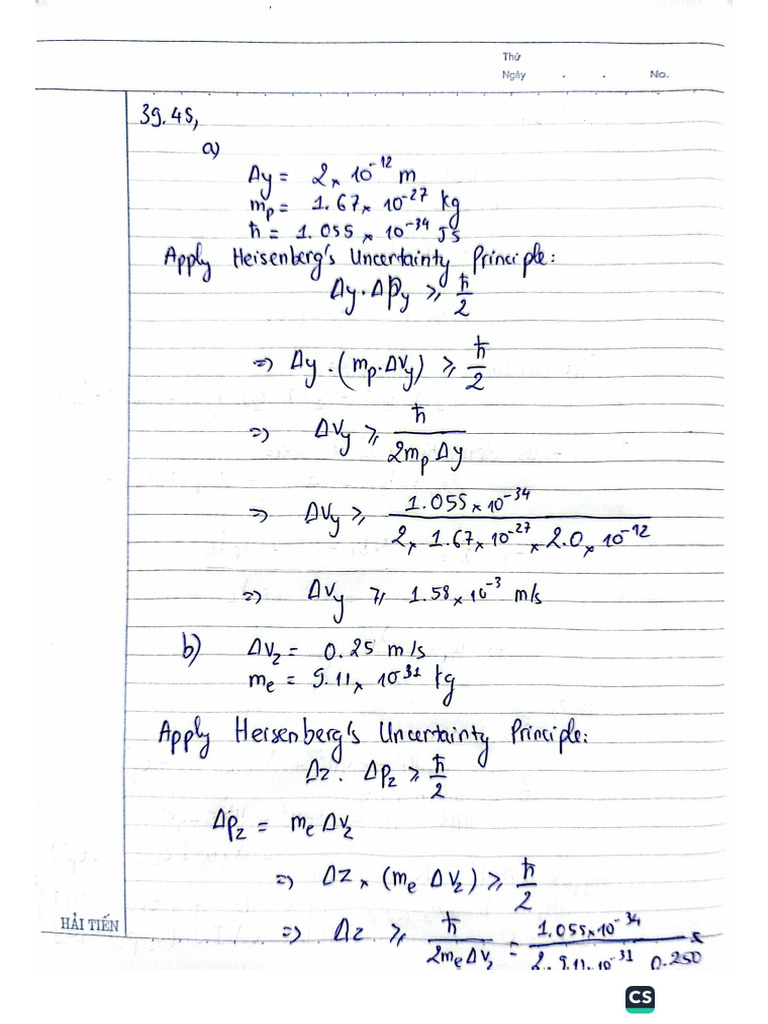 Thứ
Ngày . . No.
39.45,
a)
Δy = 2 × 10⁻¹² m
mₚ = 1.67 × 10⁻²⁷ kg
ħ = 1.055 × 10⁻³⁴ JS
Apply Heisenberg's Uncertainty Principle:
Δy · Δp_y ⩾ ħ/2
=> Δy · (mₚ · Δv_y) ⩾ ħ/2
=> Δv_y ⩾ ħ/(2mₚ Δy)
=> Δv_y ⩾ (1.055 × 10⁻³⁴)/(2 × 1.67 × 10⁻²⁷ × 2.0 × 10⁻¹²)
=> Δv_y ⩾ 1.58 × 10⁻³ m/s
b) Δv_z = 0.25 m/s
mₑ = 9.11 × 10⁻³¹ kg
Apply Heisenberg's Uncertainty Principle:
Δz · Δp_z ⩾ ħ/2
Δp_z = mₑ Δv_z
=> Δz × (mₑ Δv_z) ⩾ ħ/2
HẢI TIẾN
=> Δz ⩾ ħ/(2mₑ Δv_z) = (1.055 × 10⁻³⁴)/(2 · 9.11 · 10⁻³¹ 0.250
CS